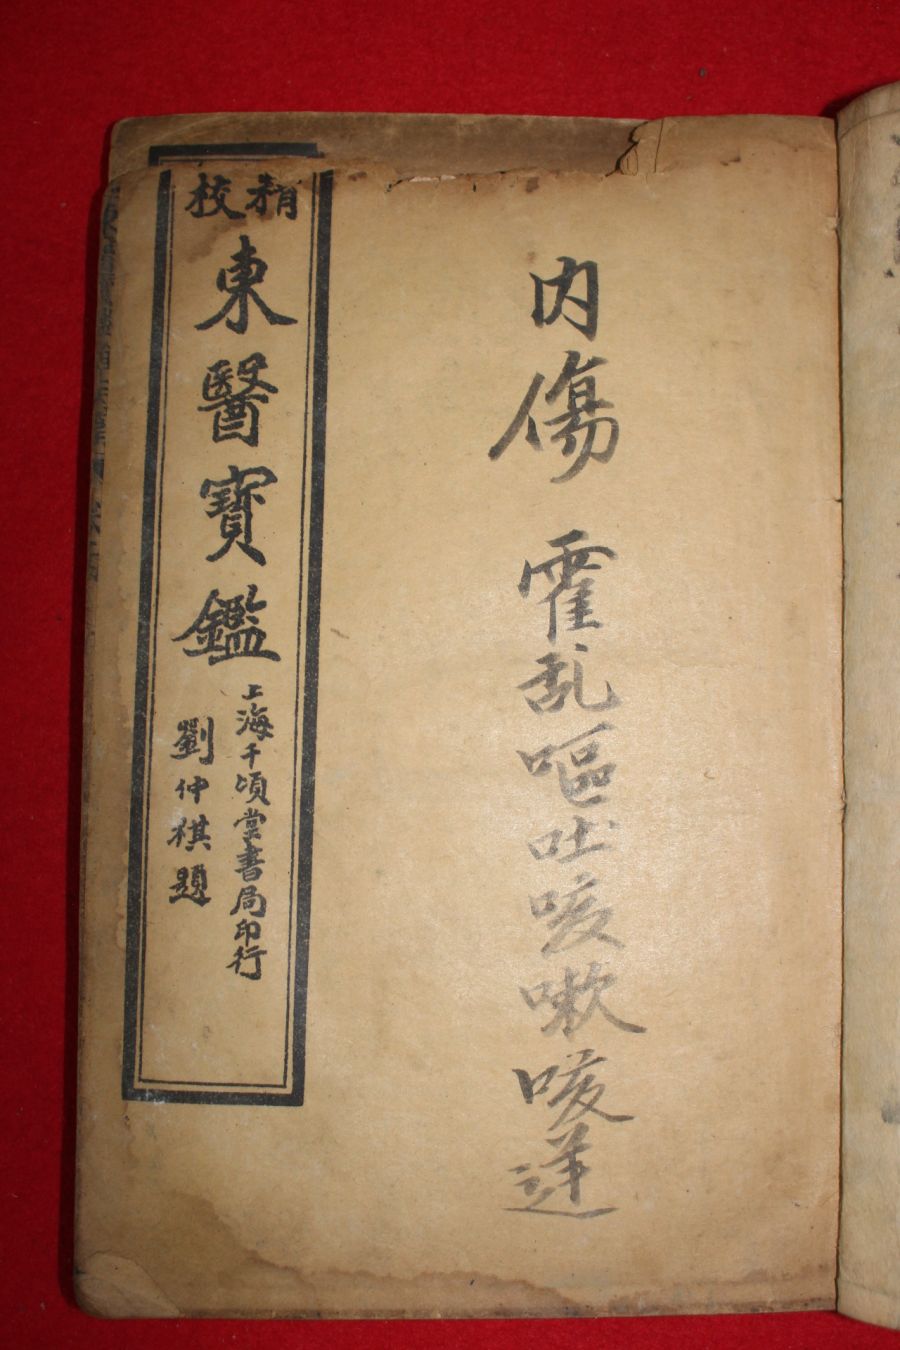 内傷 霍乱嘔吐咳嗽咳逆
精校
東醫寶鑑
上海千頃堂書局印行
劉仲棋題